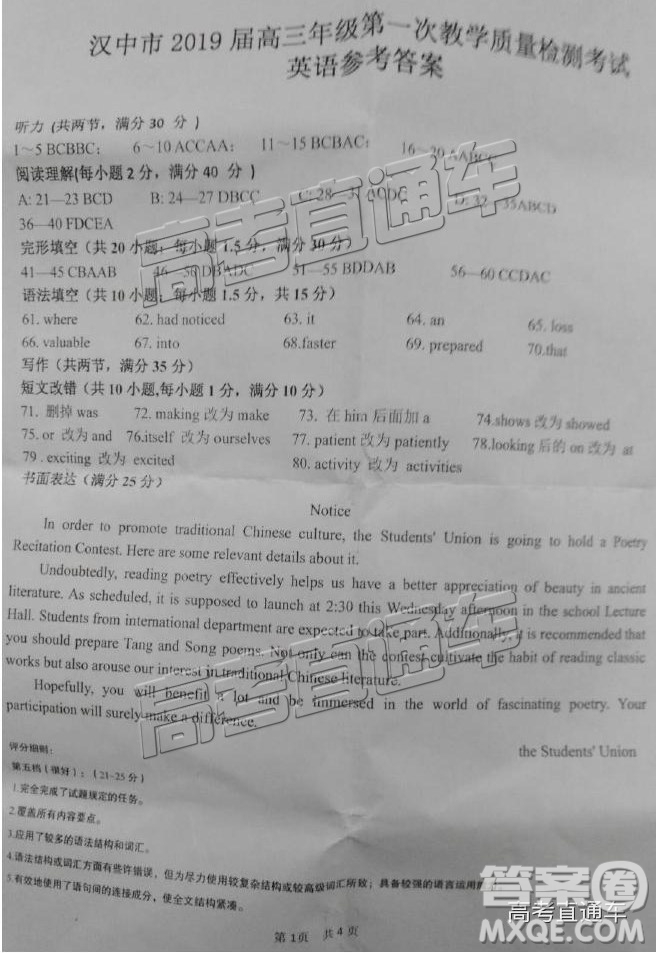 汉中市 2019 届高三年级第一次教学质量检测考试
英语参考答案
听力 (共两节，满分 30 分 )
1～5 BCBBC； 6～10 ACCAA； 11～15 BCBAC； 16～20 AABCC
阅读理解(每小题 2 分，满分 40 分 )
A: 21—23 BCD B: 24—27 DBCC C: 28—31 D: 32—35ABCD
36—40 FDCEA
完形填空（共 20 小题；每小题 1.5 分，满分 30 分）
41—45 CBAAB 46—50 DBADC 51—55 BDDAB 56—60 CCDAC
语法填空（共 10 小题；每小题 1.5 分，共 15 分）
61. where 62. had noticed 63. it 64. an 65. loss
66. valuable 67. into 68.faster 69. prepared 70.that
写作（共两节，满分 35 分）
短文改错（共 10 小题,每小题 1 分，满分 10 分）
71. 删掉 was 72. making 改为 make 73. 在 him 后面加 a 74.shows 改为 showed
75. or 改为 and 76.itself 改为 ourselves 77. patient 改为 patiently 78.looking 后的 on 改为 at
79 . exciting 改为 excited 80. activity 改为 activities
书面表达（满分 25 分）
Notice
In order to promote traditional Chinese culture, the Students' Union is going to hold a Poetry
Recitation Contest. Here are some relevant details about it.
Undoubtedly, reading poetry effectively helps us have a better appreciation of beauty in ancient
literature. As scheduled, it is supposed to launch at 2:30 this Wednesday afternoon in the school Lecture
Hall. Students from international department are expected to take part. Additionally, it is recommended that
you should prepare Tang and Song poems. Not only can the contest cultivate the habit of reading classic
works but also arouse our interest in traditional Chinese literature.
Hopefully, you will benefit a lot and be immersed in the world of fascinating poetry. Your
participation will surely make a difference.
the Students' Union
评分细则：
第五档（很好）：（21-25 分）
1.完全完成了试题规定的任务。
2.覆盖所有内容要点。
3.应用了较多的语法结构和词汇。
4.语法结构或词汇方面有些许错误，但为尽力使用较复杂结构或较高级词汇所致；具备较强的语言运用
5.有效地使用了语句间的连接成分，使全文结构紧凑。
第 1页 共 4 页
高考直通车
高考直通车
答案圈
高考直通车
MXQE.COM